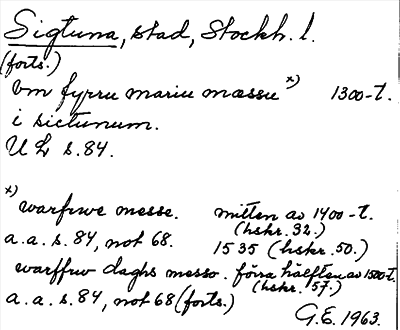 Sigtuna, stad, Stockh. l.
(forts.)
vm fyrru mariu mæssu x) 1300-t.
i sictunum.
U L s. 84.
x) warfrwe messe. mitten av 1400-t.
(hskr. 32.)
a.a. s. 84, not 68. 1535 (hskr. 50.)
warffrw daghs messo. förra hälften av 1500-t.
(hskr. 57.)
a.a. s. 84, not 68 (forts.)
G.E. 1963.